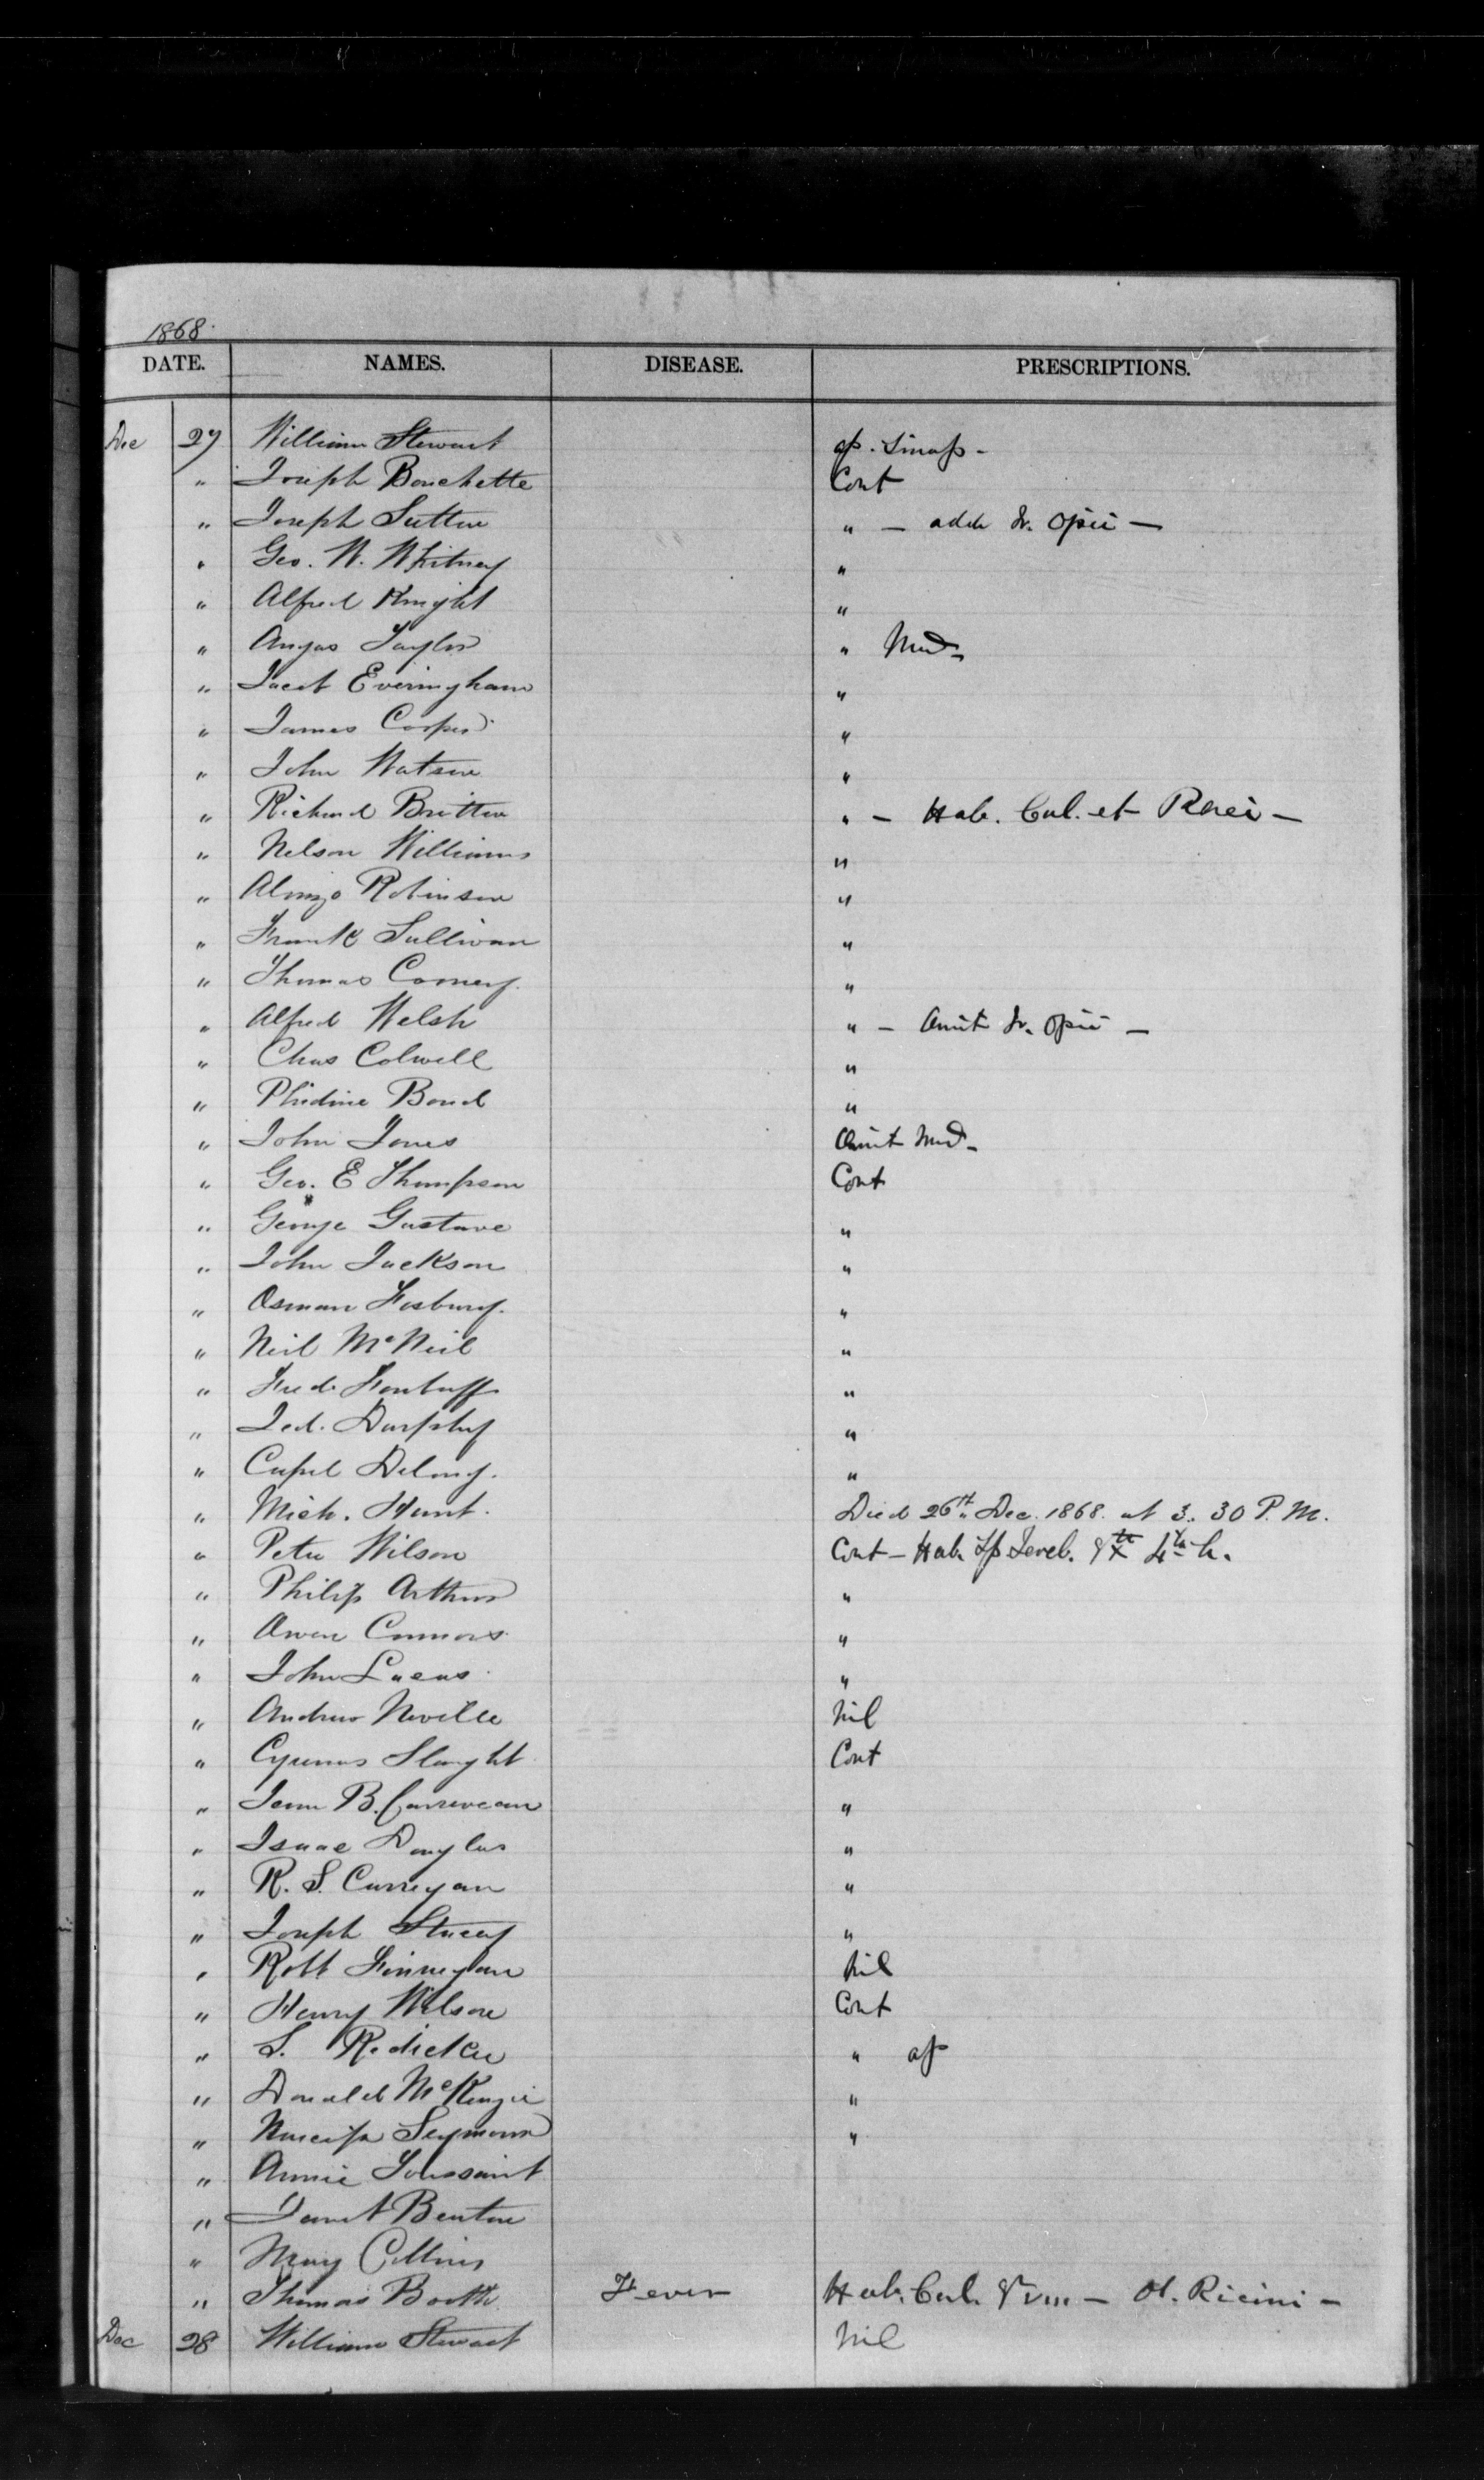 1868.
DATE. NAMES. DISEASE. PRESCRIPTIONS.
Dec 27 William Stewart ap. Sinap -
" Joseph Bouchette Cont
" Joseph Sutton " - add Tr. Opii -
" Geo. W. Whitney "
" Alfred Knight "
" Angus Taylor " Med -
" Jacob Everingham "
" James Cooper "
" John Watson "
" Richard Britton " - Hab. Cal. et Rhei -
" Nelson Williams "
" Alonzo Robinson "
" Frank Sullivan "
" Thomas Comery "
" Alfred Welsh " - Omit Tr. Opii -
" Chas Colwell "
" Phidime Bond "
" John Jones Omit Med -
" Geo. E Thompson Cont
" George Gustave "
" John Jackson "
" Osman Fosbury. "
" Neil McNeil "
" Fred. "
" Jed. "
" Delong. "
" Mich. Hunt. Died 26th Dec. 1868. at 3. 30 P. M.
" Peter Wilson Cont - Hab. 4th h.
" Philip Arthur "
" Owen Connors "
" John Lucas "
" Andrew Neville Nil
" Cyrenus Slaght Cont
" Jean B. "
" Isaac Douglas "
" R. S. Curregan "
" Joseph Stacey "
" Robt Finnegan Nil
" Henry Wilson Cont
" S. Redicker " ap
" Donald McKenzie "
" Seymour "
" Annie Toussaint
" Janet Benton
" Mary Collins
" Thomas Booth Fever Hab. Cal. gr viii - Ol. Ricini -
Dec 28 William Stewart Nil